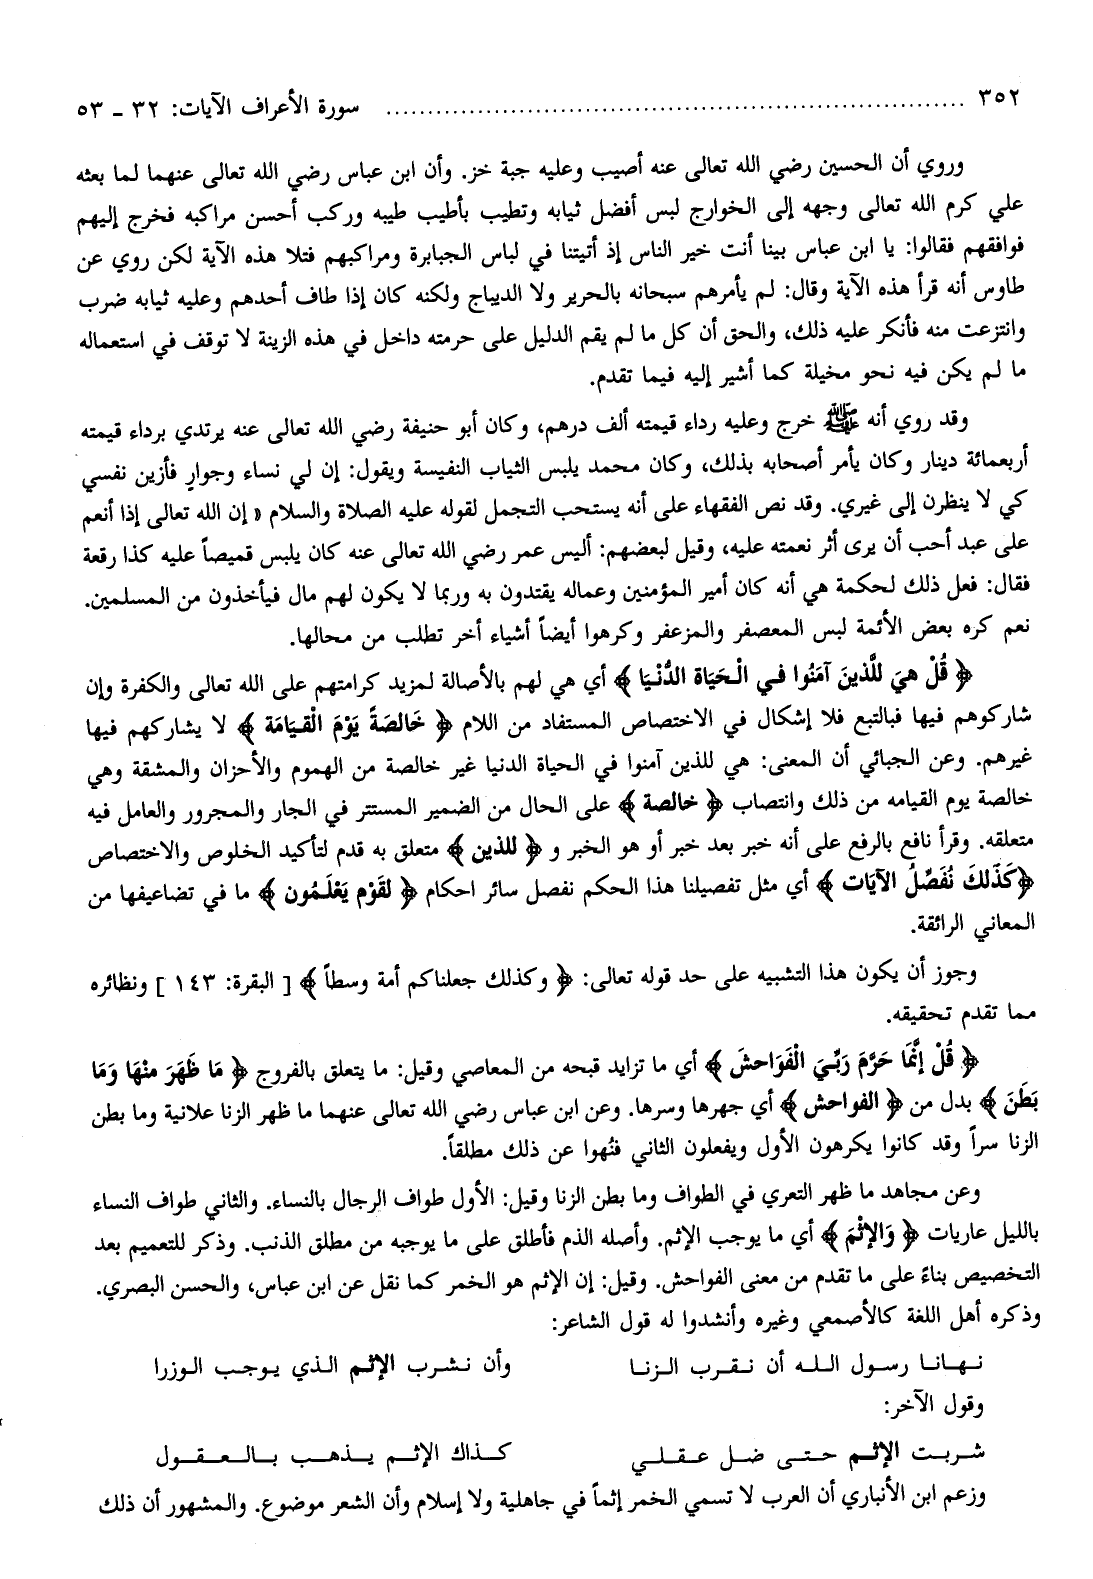 ٣٥٢ ........ سورة الأعراف الآيات: ٣٢ ـ ٥٣
وروي أن الحسين رضي الله تعالى عنه أصيب وعليه جبة خز. وأن ابن عباس رضي الله تعالى عنهما لما بعثه
علي كرم الله تعالى وجهه إلى الخوارج لبس أفضل ثيابه وتطيب بأطيب طيبه وركب أحسن مراكبه فخرج إليهم
فوافقهم فقالوا: يا ابن عباس بينا أنت خير الناس إذ أتيتنا في لباس الجبابرة ومراكبهم فتلا هذه الآية لكن روي عن
طاوس أنه قرأ هذه الآية وقال: لم يأمرهم سبحانه بالحرير ولا الديباج ولكنه كان إذا طاف أحدهم وعليه ثيابه ضرب
وانتزعت منه فأنكر عليه ذلك، والحق أن كل ما لم يقم الدليل على حرمته داخل في هذه الزينة لا توقف في استعماله
ما لم يكن فيه نحو مخيلة كما أشير إليه فيما تقدم.
وقد روي أنه ﷺ خرج وعليه رداء قيمته ألف درهم، وكان أبو حنيفة رضي الله تعالى عنه يرتدي برداء قيمته
أربعمائة دينار وكان يأمر أصحابه بذلك، وكان محمد يلبس الثياب النفيسة ويقول: إن لي نساء وجوارٍ فأزين نفسي
كي لا ينظرن إلى غيري. وقد نص الفقهاء على أنه يستحب التجمل لقوله عليه الصلاة والسلام « إن الله تعالى إذا أنعم
على عبد أحب أن يرى أثر نعمته عليه، وقيل لبعضهم: أليس عمر رضي الله تعالى عنه كان يلبس قميصاً عليه كذا رقعة
فقال: فعل ذلك لحكمة هي أنه كان أمير المؤمنين وعماله يقتدون به وربما لا يكون لهم مال فيأخذون من المسلمين.
نعم كره بعض الأئمة لبس المعصفر والمزعفر وكرهوا أيضاً أشياء أخر تطلب من محالها.
﴿ قُلْ هيَ للَّذينَ آمَنُوا في الْحَيَاة الدُّنْيَا ﴾ أي هي لهم بالأصالة لمزيد كرامتهم على الله تعالى والكفرة وإن
شاركوهم فيها فبالتبع فلا إشكال في الاختصاص المستفاد من اللام ﴿ خَالصَةً يَوْمَ الْقيَامَة ﴾ لا يشاركهم فيها
غيرهم. وعن الجبائي أن المعنى: هي للذين آمنوا في الحياة الدنيا غير خالصة من الهموم والأحزان والمشقة وهي
خالصة يوم القيامه من ذلك وانتصاب ﴿ خالصة ﴾ على الحال من الضمير المستتر في الجار والمجرور والعامل فيه
متعلقه. وقرأ نافع بالرفع على أنه خبر بعد خبر أو هو الخبر و ﴿ للذين ﴾ متعلق به قدم لتأكيد الخلوص والاختصاص
﴿كَذَلكَ نُفَصِّلُ الآيَات ﴾ أي مثل تفصيلنا هذا الحكم نفصل سائر احكام ﴿ لقَوْم يَعْلَمُون ﴾ ما في تضاعيفها من
المعاني الرائقة.
وجوز أن يكون هذا التشبيه على حد قوله تعالى: ﴿ وكذلك جعلناكم أمة وسطاً ﴾ [ البقرة: ١٤٣ ] ونظائره
مما تقدم تحقيقه.
﴿ قُلْ إنَّمَا حَرَّمَ رَبِّيَ الْفَوَاحشَ ﴾ أي ما تزايد قبحه من المعاصي وقيل: ما يتعلق بالفروج ﴿ مَا ظَهَرَ منْهَا وَمَا
بَطَنَ ﴾ بدل من ﴿ الفواحش ﴾ أي جهرها وسرها. وعن ابن عباس رضي الله تعالى عنهما ما ظهر الزنا علانية وما بطن
الزنا سراً وقد كانوا يكرهون الأول ويفعلون الثاني فنُهوا عن ذلك مطلقاً.
وعن مجاهد ما ظهر التعري في الطواف وما بطن الزنا وقيل: الأول طواف الرجال بالنساء. والثاني طواف النساء
بالليل عاريات ﴿ وَالإثْمَ ﴾ أي ما يوجب الإثم. وأصله الذم فأطلق على ما يوجبه من مطلق الذنب. وذكر للتعميم بعد
التخصيص بناءً على ما تقدم من معنى الفواحش. وقيل: إن الإثم هو الخمر كما نقل عن ابن عباس، والحسن البصري.
وذكره أهل اللغة كالأصمعي وغيره وأنشدوا له قول الشاعر:
نهانا رسول الله أن نقرب الزنا وأن نشرب الإثم الذي يوجب الوزرا
وقول الآخر:
شربت الإثم حتى ضل عقلي كذاك الإثم يذهب بالعقول
وزعم ابن الأنباري أن العرب لا تسمي الخمر إثماً في جاهلية ولا إسلام وأن الشعر موضوع. والمشهور أن ذلك